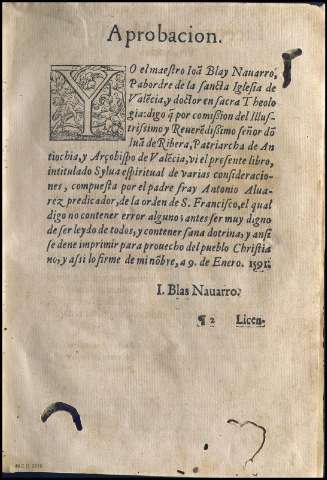 Aprobacion.
YO el maestro Ioã Blay Nauarro,
Pabordre de la sancta Iglesia de
Valẽcia, y doctor en sacra Theolo
gia: digo q̃ por comision del Illus-
trissimo y Reuerẽdissimo señor dõ
Iuã de Ribera, Patriarcha de An
tiochia, y Arçobispo de Valẽcia, vi el presente libro,
intitulado Sylua espiritual de varias consideracio-
nes, compuesta por el padre fray Antonio Alua-
rez predicador, de la orden de S. Francisco, el qual
digo no contener error alguno: antes ser muy digno
de ser leydo de todos, y contener sana dotrina, y ansi
se deue imprimir para prouecho del pueblo Christia
no, y assi lo firme de mi nõbre, a 9. de Enero. 1591.
I. Blas Nauarro.
¶ 2 Licen-